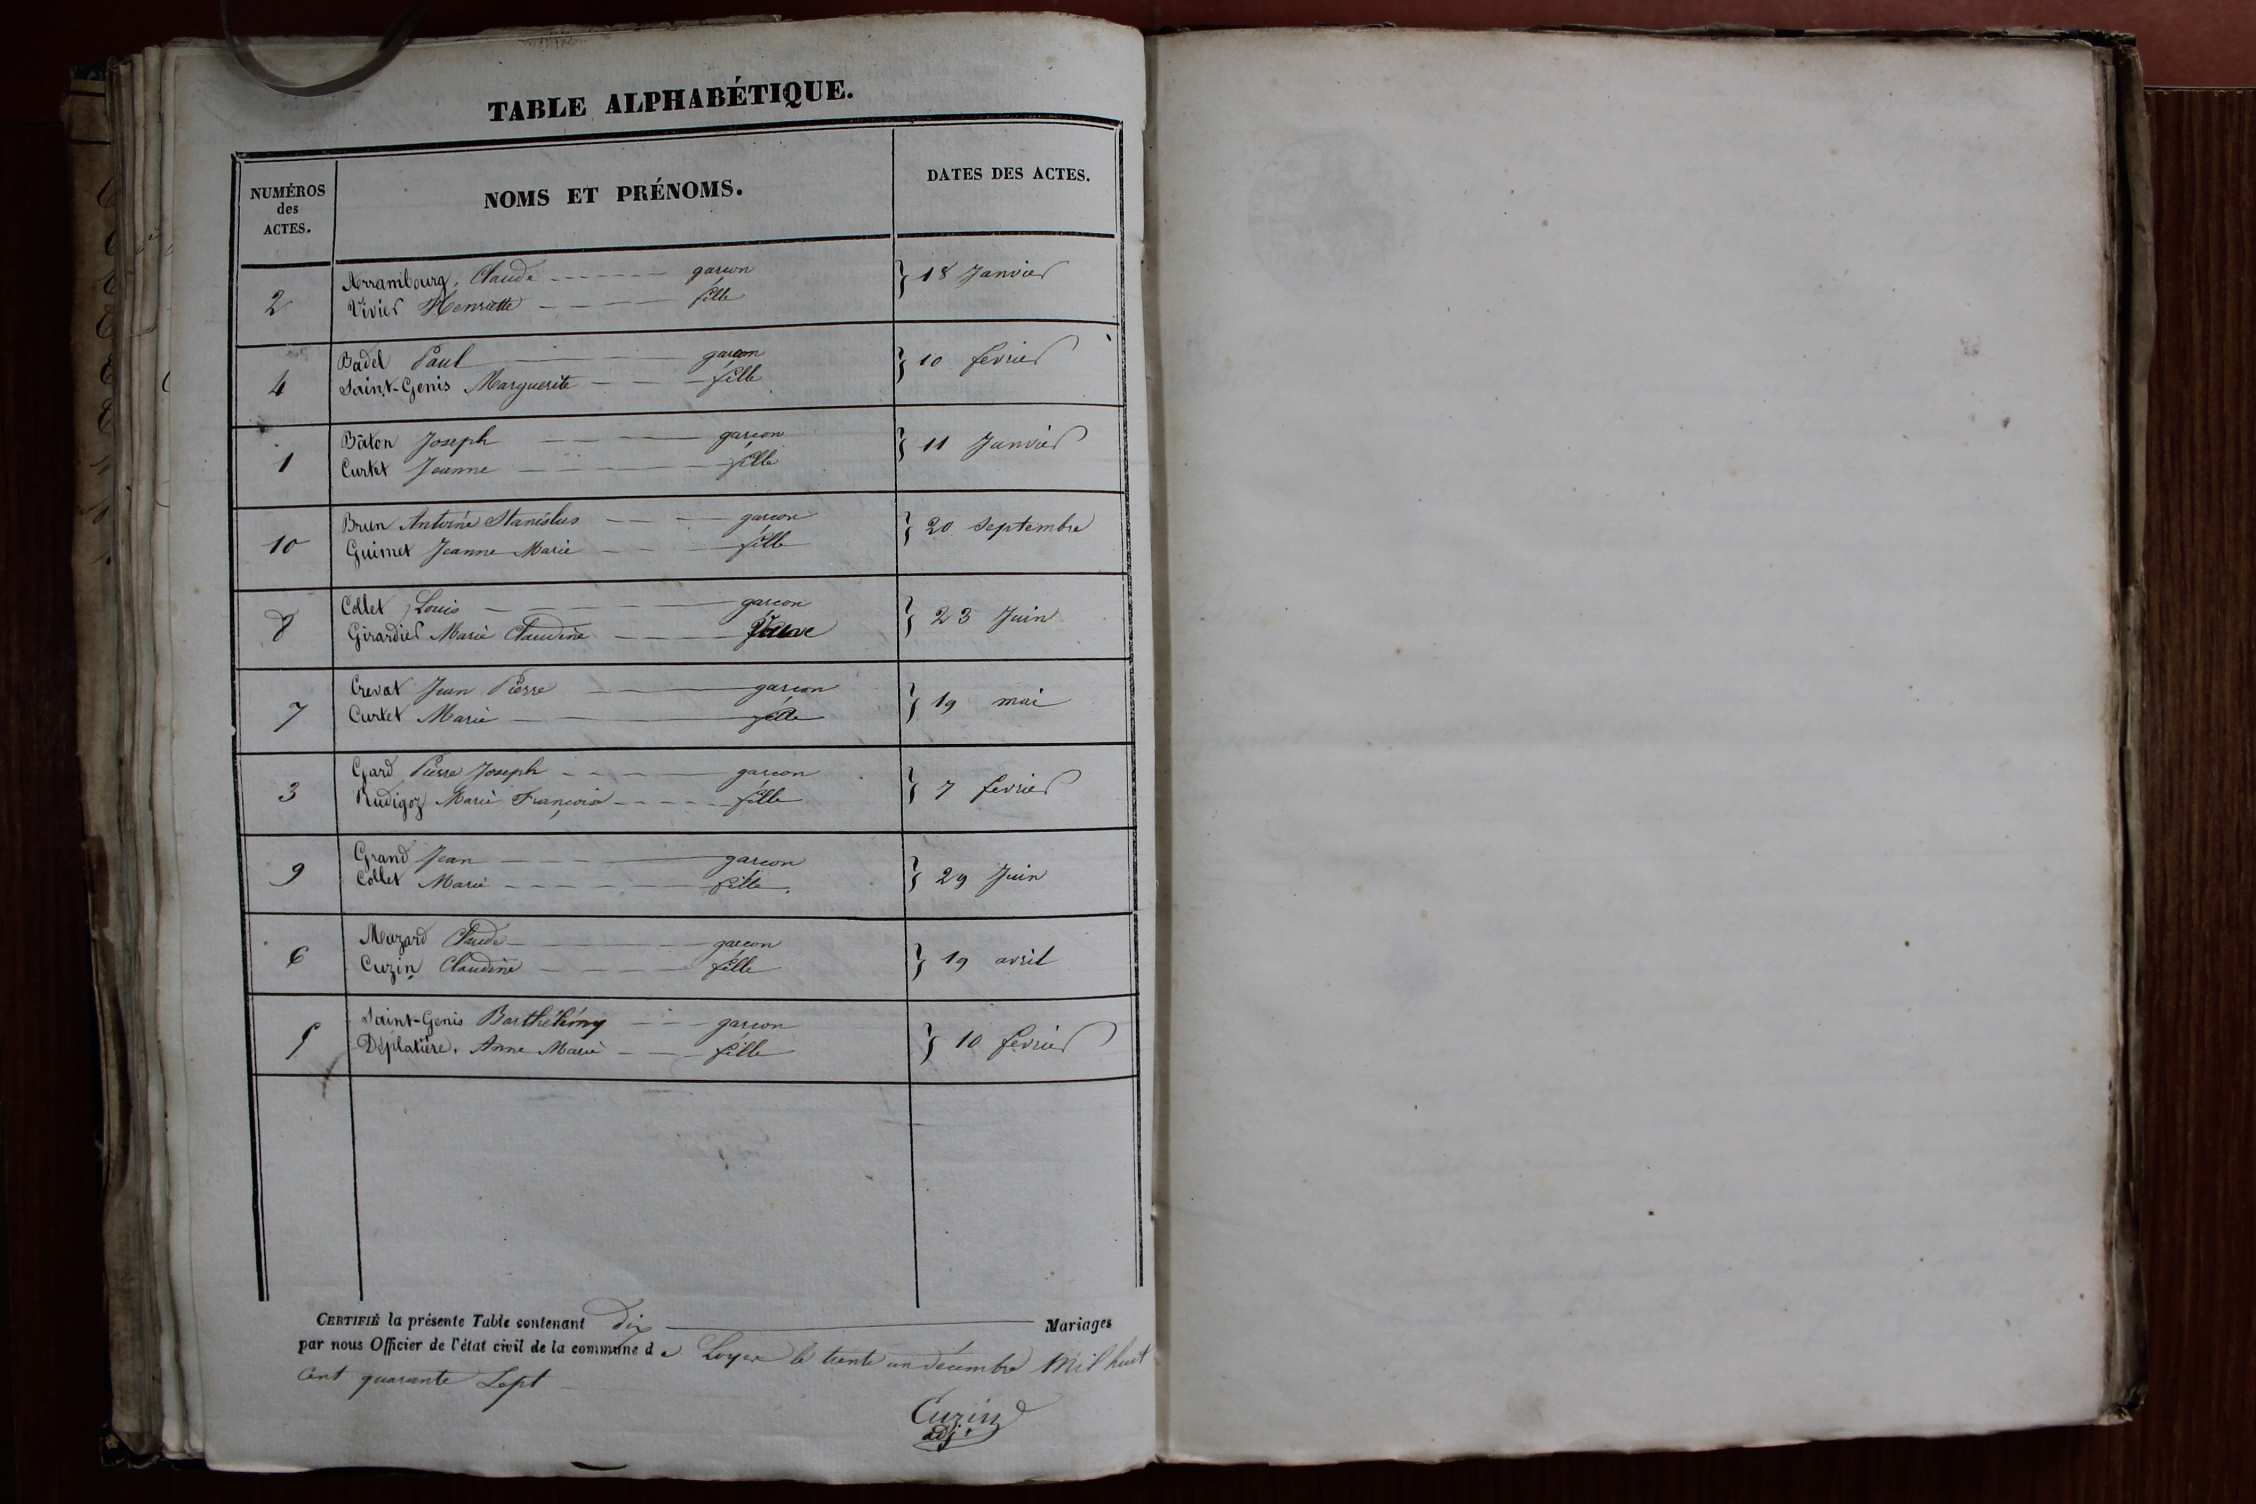 TABLE ALPHABÉTIQUE.
NUMÉROS
des
ACTES.
NOMS ET PRÉNOMS.
DATES DES ACTES.
2
Arrambourg, Claude garcon
Vivier Henriette fille
} 18 Janvier
4
Badel Paul garcon
Saint-Genis Marguerite fille
} 10 fevrier
1
Bâton Joseph garcon
Curtet Jeanne fille
} 11 Janvier
10
Brun Antoine Stanislas garcon
Guimet Jeanne Marie fille
} 20 Septembre
8
Collet Louis garcon
Girardier Marie Claudine Veuve
} 23 Juin
7
Crevat Jean Pierre garcon
Curtet Marie fille
} 19 mai
3
Gard Pierre Joseph garcon
Rudigoz Marie Françoise fille
} 7 fevrier
9
Grand Jean garcon
Collet Marie fille
} 29 Juin
6
Mazard Claude garcon
Cuzin Claudine fille
} 19 avril
5
Saint-Genis Barthélémy garcon
Déplatière, Anne Marie fille
} 10 fevrier
CERTIFIÉ la présente Table contenant dix Mariages
par nous Officier de l'état civil de la commune de Loyes le trente un décembre Mil huit
Cent quarante Sept
Cuzin
adj.